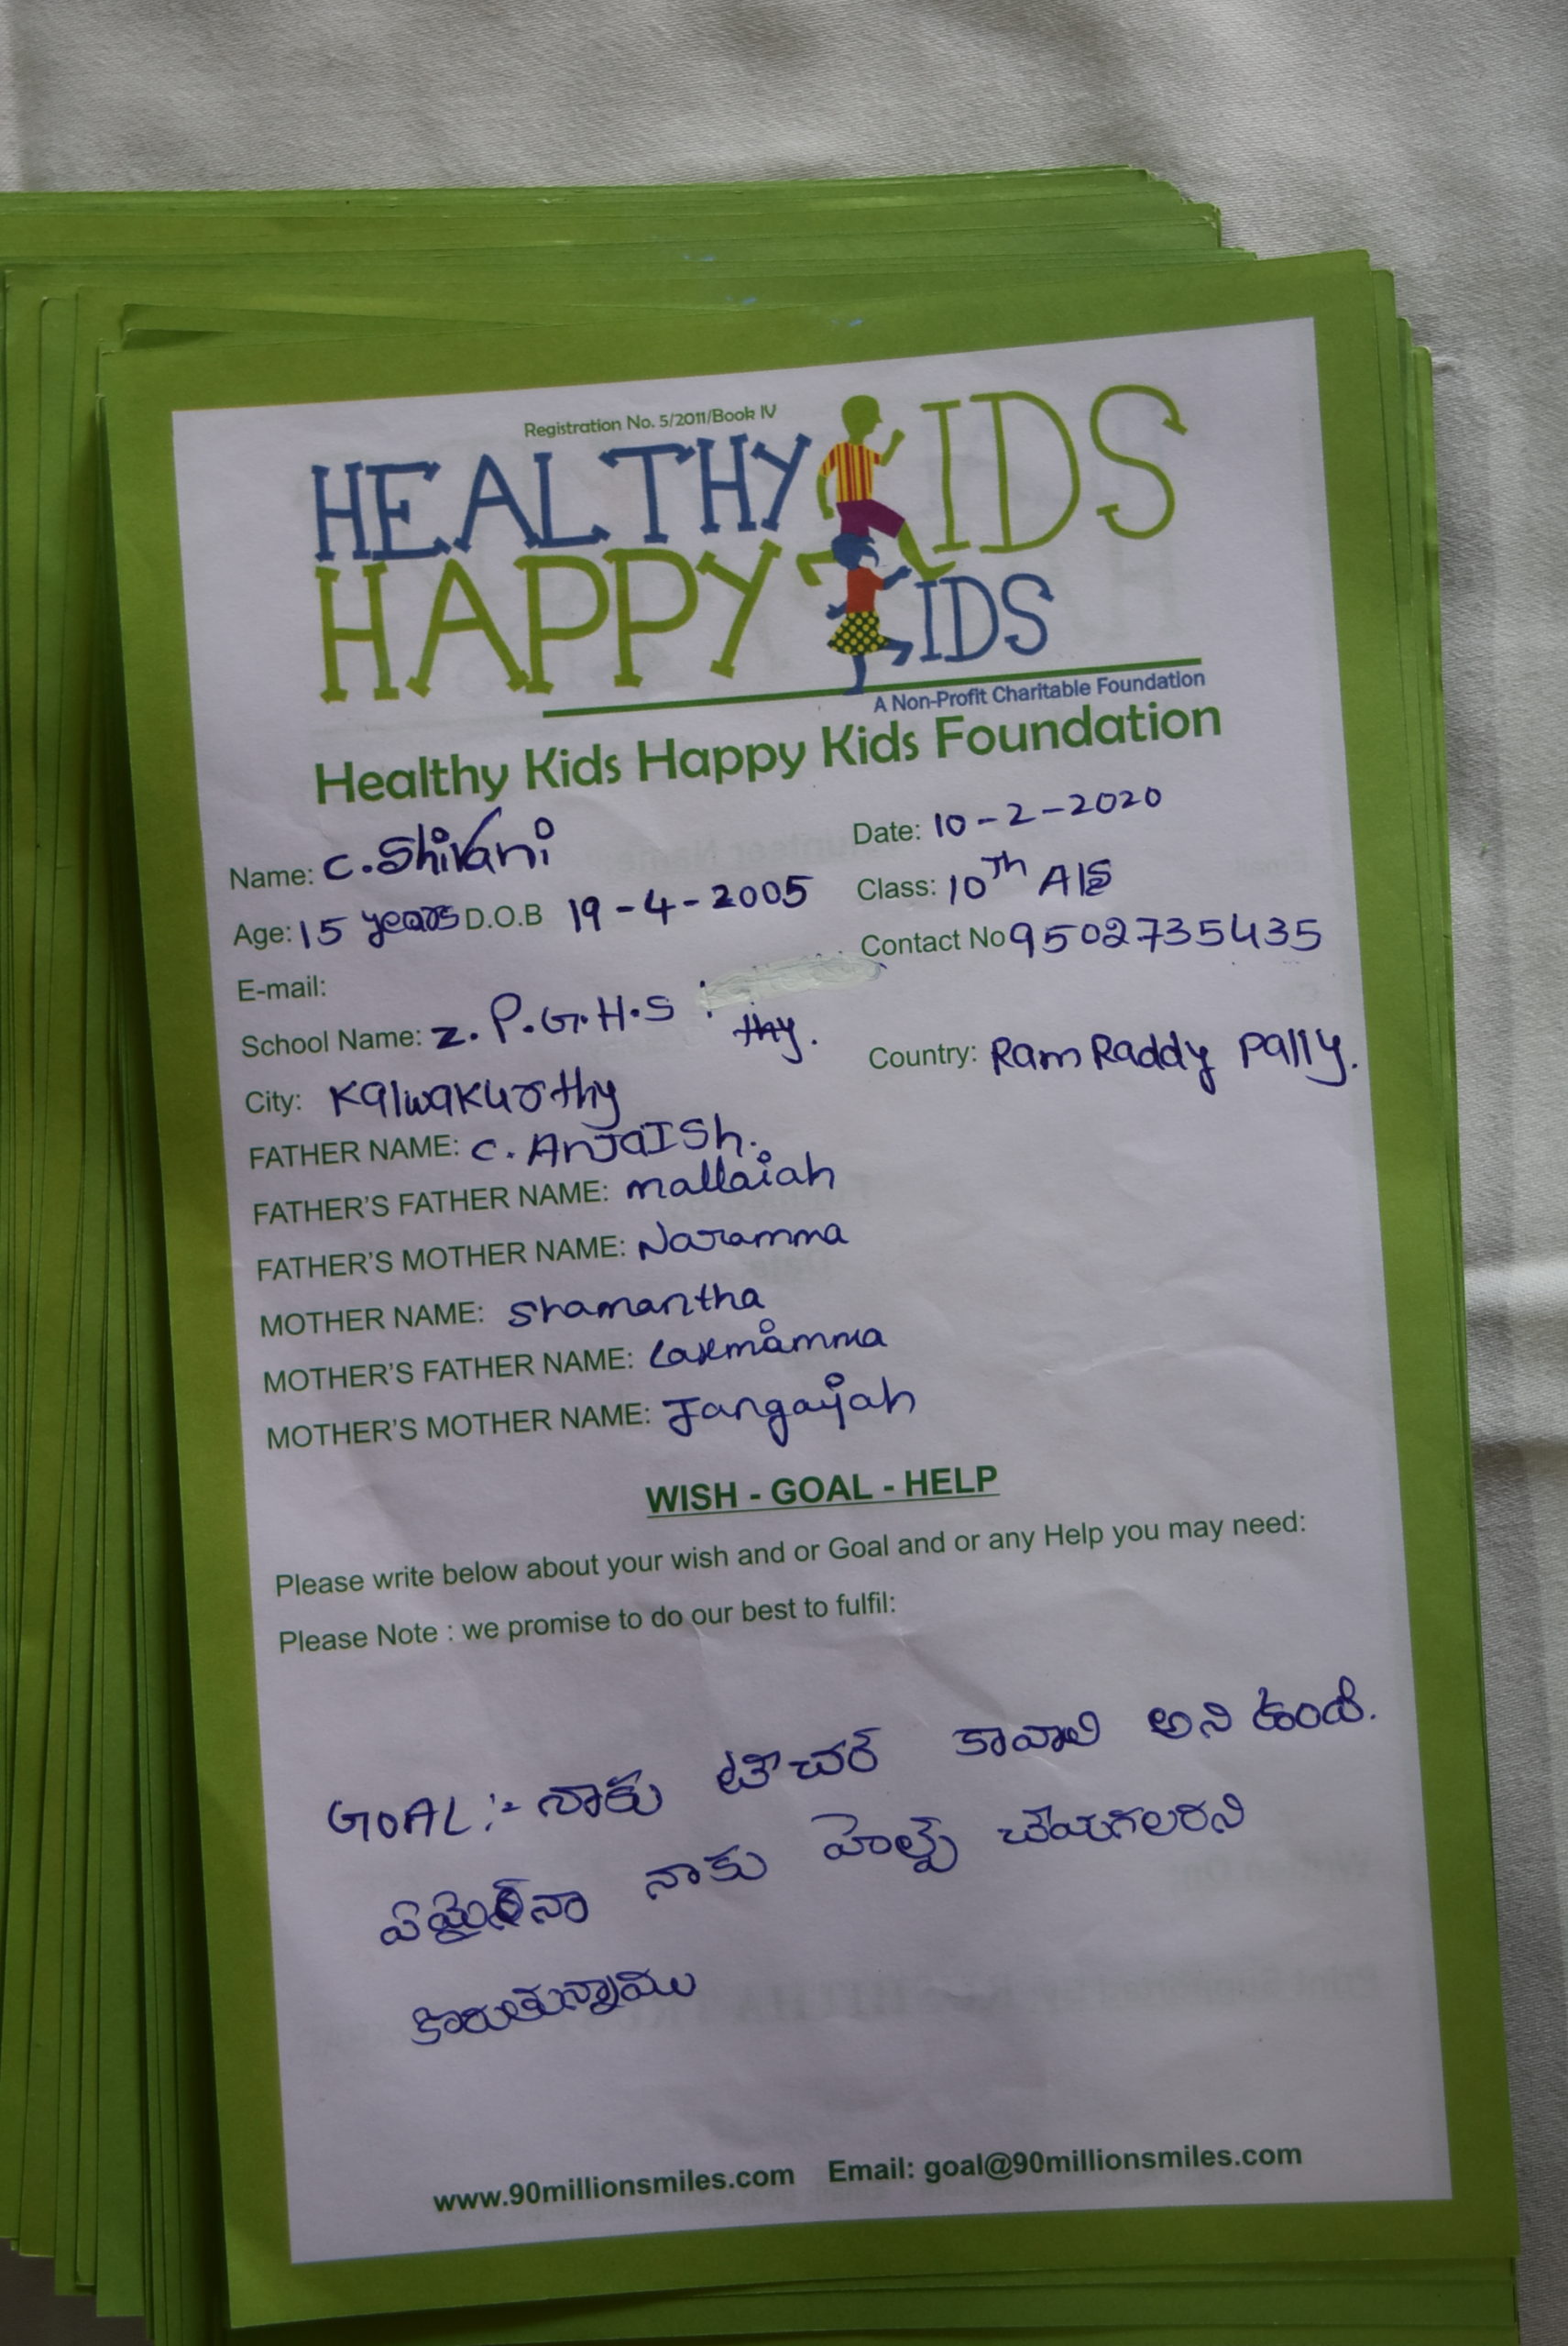 Registration No. 5/2011/Book IV
HEALTHY KIDS
HAPPY KIDS
A Non-Profit Charitable Foundation
Healthy Kids Happy Kids Foundation
Name: C. Shivani Date: 10-2-2020
Age: 15 years D.O.B 19-4-2005 Class: 10Th A/S
E-mail: Contact No 9502735435
School Name: Z.P.G.H.S : thy.
City: Kalwakurthy Country: Ram Raddy Pally.
FATHER NAME: C. AnJaISh.
FATHER'S FATHER NAME: mallaiah
FATHER'S MOTHER NAME: Naramma
MOTHER NAME: Shamantha
MOTHER'S FATHER NAME: Laxmamma
MOTHER'S MOTHER NAME: Jangaiah
WISH - GOAL - HELP
Please write below about your wish and or Goal and or any Help you may need:
Please Note : we promise to do our best to fulfil:
GOAL :- నాకు టీచర్ కావాలి అని ఉంది.
ఏమైనా నాకు హెల్ప్ చేయగలరని
కోరుతున్నాము
www.90millionsmiles.com Email: goal@90millionsmiles.com